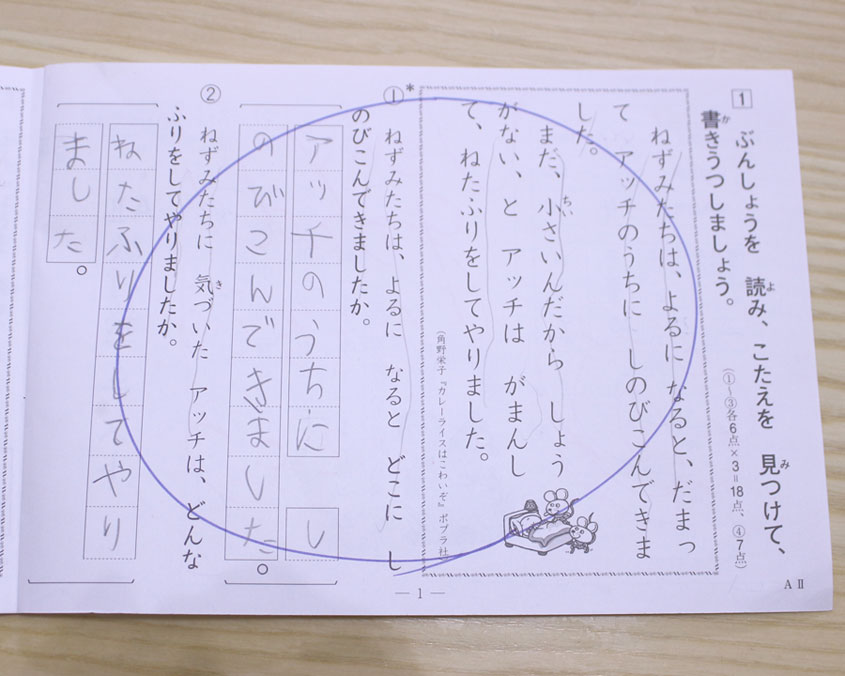 1 ぶんしょうを 読み、こたえを 見つけて、
書きうつしましょう。
(①~③各6点×3=18点、④7点)
ねずみたちは、よるに なると、だまっ
て アッチのうちに しのびこんできま
した。
まだ、小さいんだから しょう
がない、と アッチは がまんし
て、ねたふりをしてやりました。
(角野栄子『カレーライスはこわいぞ』ポプラ社)
*
① ねずみたちは、よるに なると どこに し
のびこんできましたか。
アッチのうちに し
のびこんできました。
② ねずみたちに 気づいた アッチは、どんな
ふりをしてやりましたか。
ねたふりをしてやり
ました。
— 1 —
A II